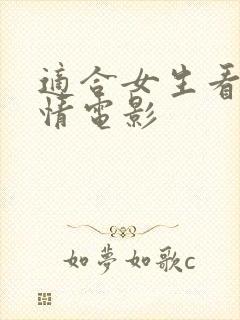 適合女生看
情電影
如夢如歌c